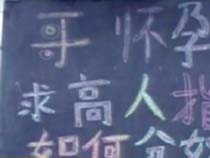 哥怀孕
求高人指
如何分娩